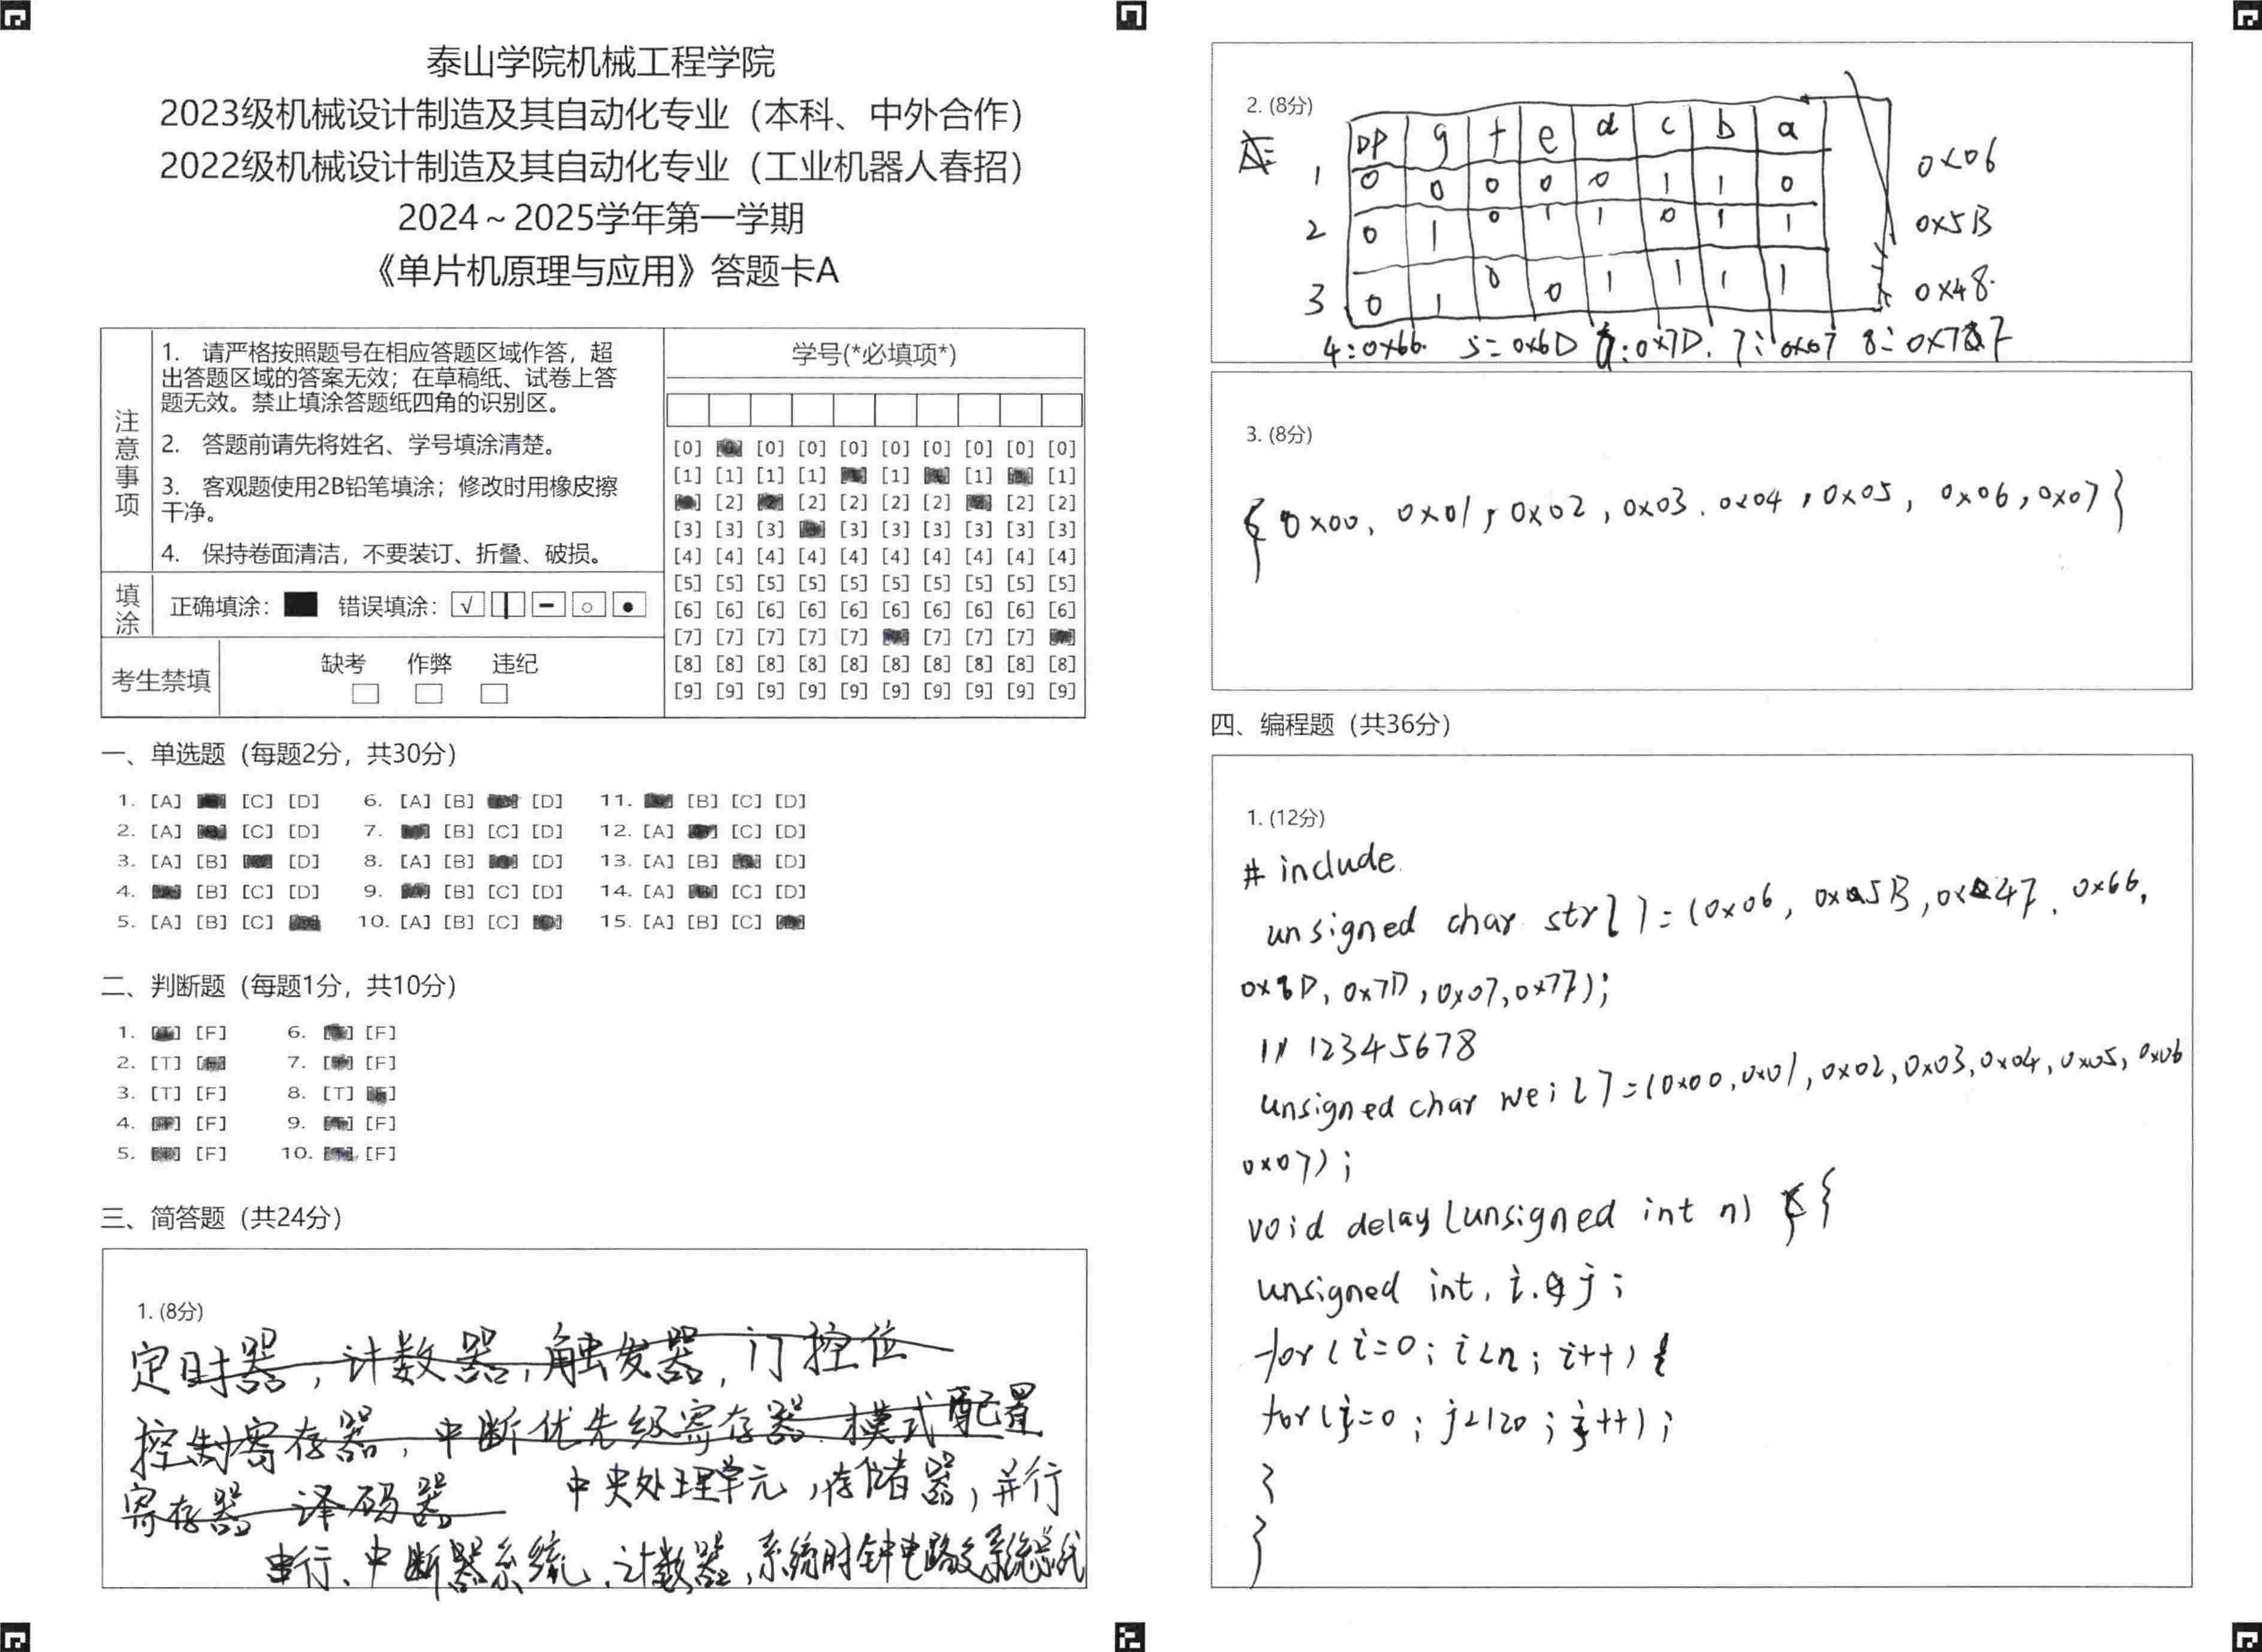 泰山学院机械工程学院
2023级机械设计制造及其自动化专业（本科、中外合作）
2022级机械设计制造及其自动化专业（工业机器人春招）
2024～2025学年第一学期
《单片机原理与应用》答题卡A
注意事项
1. 请严格按照题号在相应答题区域作答，超
出答题区域的答案无效；在草稿纸、试卷上答
题无效。禁止填涂答题纸四角的识别区。
2. 答题前请先将姓名、学号填涂清楚。
3. 客观题使用2B铅笔填涂；修改时用橡皮擦
干净。
4. 保持卷面清洁，不要装订、折叠、破损。
填涂
正确填涂： 错误填涂：
考生禁填
缺考 作弊 违纪
学号(*必填项*)
[0] [0] [0] [0] [0] [0] [0] [0] [0]
[1] [1] [1] [1] [1] [1] [1]
[2] [2] [2] [2] [2] [2] [2]
[3] [3] [3] [3] [3] [3] [3] [3] [3]
[4] [4] [4] [4] [4] [4] [4] [4] [4] [4]
[5] [5] [5] [5] [5] [5] [5] [5] [5] [5]
[6] [6] [6] [6] [6] [6] [6] [6] [6] [6]
[7] [7] [7] [7] [7] [7] [7] [7]
[8] [8] [8] [8] [8] [8] [8] [8] [8] [8]
[9] [9] [9] [9] [9] [9] [9] [9] [9] [9]
一、单选题（每题2分，共30分）
1. [A] [C] [D] 6. [A] [B] [D] 11. [B] [C] [D]
2. [A] [C] [D] 7. [B] [C] [D] 12. [A] [C] [D]
3. [A] [B] [D] 8. [A] [B] [D] 13. [A] [B] [D]
4. [B] [C] [D] 9. [B] [C] [D] 14. [A] [C] [D]
5. [A] [B] [C] 10. [A] [B] [C] 15. [A] [B] [C]
二、判断题（每题1分，共10分）
1. [F] 6. [F]
2. [T] 7. [F]
3. [T] [F] 8. [T]
4. [F] 9. [F]
5. [F] 10. [F]
三、简答题（共24分）
1. (8分)
定时器，计数器，触发器，门控位
控制寄存器，中断优先级寄存器 模式配置
寄存器 译码器 中央处理单元，存储器，并行
串行、中断器系统，计数器，系统时钟电路及系统总线
2. (8分)
DP g f e d c b a
1 0 0 0 0 0 1 1 0 0x06
2 0 1 0 1 1 0 1 1 0x5B
3 0 1 0 0 1 1 1 1 0x48
4:0x66. 5=0x6D 6:0x7D. 7:0x07 8:0x7F
3. (8分)
{0x00, 0x01, 0x02, 0x03. 0x04, 0x05, 0x06, 0x07}
四、编程题（共36分）
1. (12分)
# include
unsigned char str[]=(0x06, 0x5B, 0x47. 0x66,
0x8D, 0x7D, 0x07, 0x7F);
// 12345678
unsigned char wei[]=(0x00,0x01,0x02,0x03,0x04,0x05,0x06
0x07);
void delay(unsigned int n) {
unsigned int, i. j;
for(i=0; i<n; i++) {
for(j=0; j<120; j++);
}
}